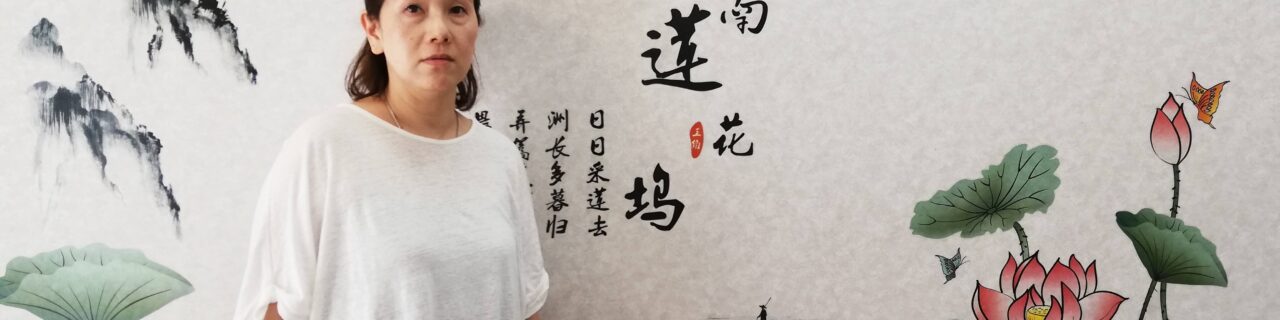 南莲花坞
王维
日日采莲去
洲长多暮归
弄篙